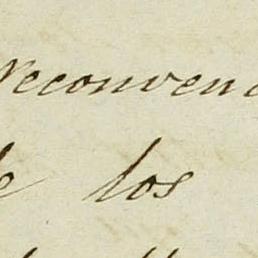 reconven
de los